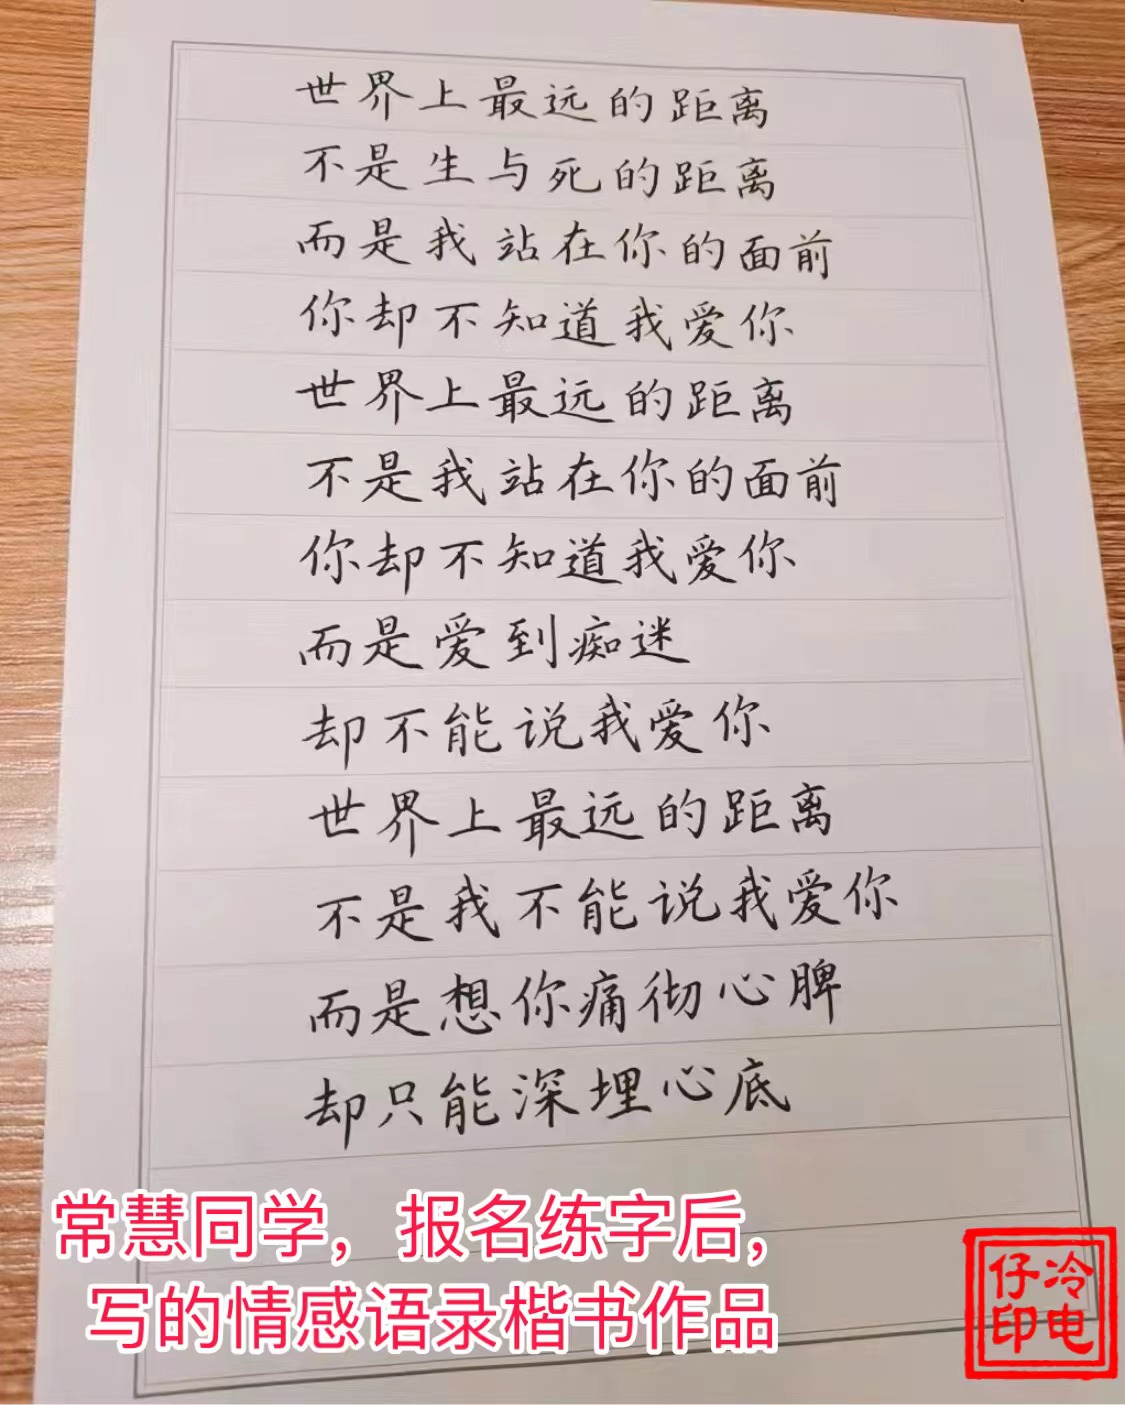 世界上最远的距离
不是生与死的距离
而是我站在你的面前
你却不知道我爱你
世界上最远的距离
不是我站在你的面前
你却不知道我爱你
而是爱到痴迷
却不能说我爱你
世界上最远的距离
不是我不能说我爱你
而是想你痛彻心脾
却只能深埋心底
常慧同学，报名练字后，
写的情感语录楷书作品
冷电
仔印